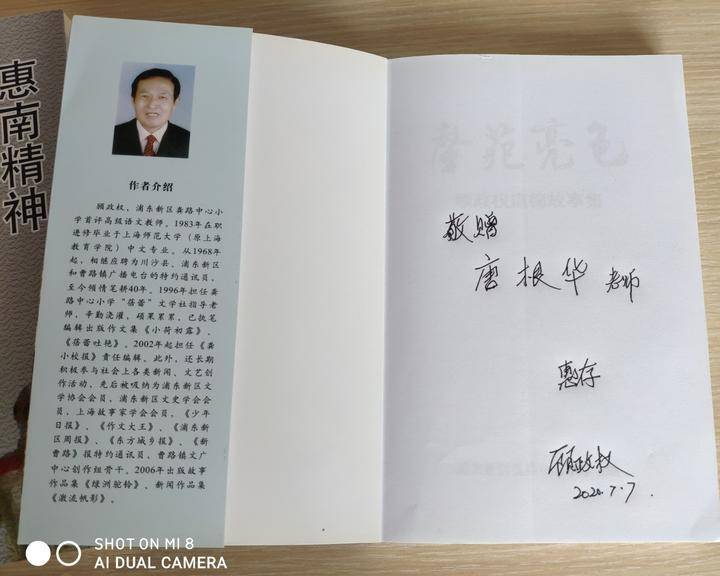 惠南精神
作者介绍
顾政权，浦东新区龚路中心小
学首评高级语文教师。1983年在职
进修毕业于上海师范大学（原上海
教育学院）中文专业。从1968年
起，相继应聘为川沙县、浦东新区
和曹路镇广播电台的特约通讯员，
至今倾情笔耕40年。1996年担任龚
路中心小学“蓓蕾”文学社指导老
师，辛勤浇灌，硕果累累，已执笔
编辑出版作文集《小荷初露》、
《蓓蕾吐艳》。2002年起担任《龚
小校报》责任编辑。此外，还长期
积极参与社会上各类新闻、文艺创
作活动，先后被吸纳为浦东新区文
学协会会员、浦东新区文史学会会
员、上海故事家学会会员，《少年
日报》、《作文大王》、《浦东新
区周报》、《东方城乡报》、《新
曹路》报特约通讯员、曹路镇文广
中心创作组骨干。2006年出版故事
作品集《绿洲驼铃》、新闻作品集
《激流帆影》。
敬赠
唐根华 老师
惠存
顾政权
2020.7.7.
SHOT ON MI 8
AI DUAL CAMERA